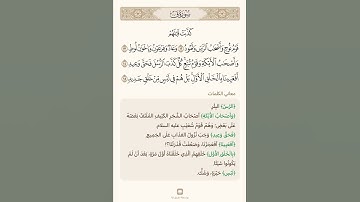 سورة ق
كَذَّبَتْ قَبْلَهُمْ
قَوْمُ نُوحٍ وَأَصْحَابُ الرَّسِّ وَثَمُودُ ۝ وَعَادٌ وَفِرْعَوْنُ وَإِخْوَانُ لُوطٍ ۝
وَأَصْحَابُ الْأَيْكَةِ وَقَوْمُ تُبَّعٍ كُلٌّ كَذَّبَ الرُّسُلَ فَحَقَّ وَعِيدِ ۝
أَفَعَيِينَا بِالْخَلْقِ الْأَوَّلِ بَلْ هُمْ فِي لَبْسٍ مِنْ خَلْقٍ جَدِيدٍ ۝
معاني الكلمات
(الرَّسِّ) البِئْرِ.
(وَأَصْحَابُ الْأَيْكَةِ) أَصْحَابُ الشَّجَرِ الكَثِيفِ المُلْتَفِّ بَعْضُهُ
عَلَى بَعْضٍ؛ وَهُمْ قَوْمُ شُعَيْبٍ عليه السلام.
(فَحَقَّ وَعِيدِ) وَجَبَ نُزُولُ العَذَابِ عَلَى الجَمِيعِ.
(أَفَعَيِينَا) أَفَعَجَزْنَا، وَضَعُفَتْ قُدْرَتُنَا؟!
(بِالْخَلْقِ الْأَوَّلِ) خَلْقِهِمُ الَّذِي خَلَقْنَاهُ أَوَّلَ مَرَّةٍ، بَعْدَ أَنْ لَمْ
يَكُونُوا شَيْئًا.
(لَبْسٍ) حَيْرَةٍ، وَشَكٍّ.